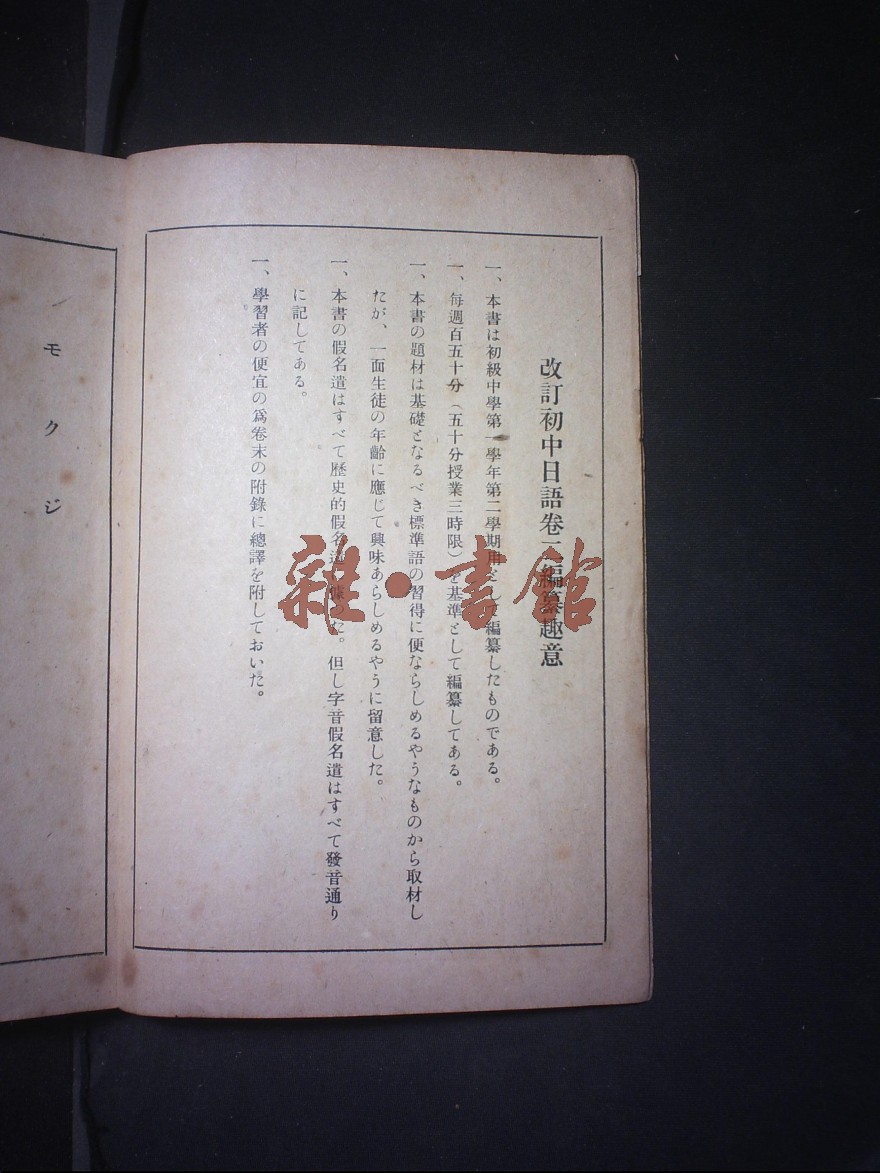 改訂初中日語卷二編纂趣意
一、本書は初級中學第一學年第二學期用として編纂したものである。
一、每週百五十分（五十分授業三時限）を基準として編纂してある。
一、本書の題材は基礎となるべき標準語の習得に便ならしめるやうなものから取材し
たが、一面生徒の年齡に應じて興味あらしめるやうに留意した。
一、本書の假名遣はすべて歷史的假名遣に據つた。但し字音假名遣はすべて發音通り
に記してある。
一、學習者の便宜の爲卷末の附錄に總譯を附しておいた。
モクジ
雜·書館